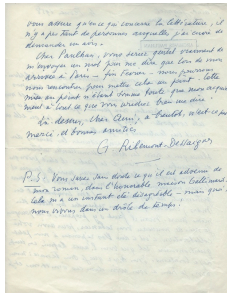 vous assure qu'en ce qui concerne la littérature, il
n'y a pas tant de personnes auxquelles j'ai envie de
demander un avis.
Cher Paulhan, vous seriez gentil vraiment de
m'envoyer un mot pour me dire que lors de mon
arrivée à Paris - fin Février - nous pourrons
nous rencontrer pour mettre cela au point. Cette
mise au point n'étant bonne toute que mon
ment à tout ce que vous voudrez bien me dire.
Là dessus, cher Ami, à bientôt, n'est-ce pas
merci, et bonnes amitiés
G. Ribemont-Dessaignes
P.S. Vous savez sans doute ce qu'il est advenu de
mon roman, dans l'honorable maison Gallimard.
Cela m'a un instant été désagréable - mais quoi,
nous vivons dans un drôle de temps.